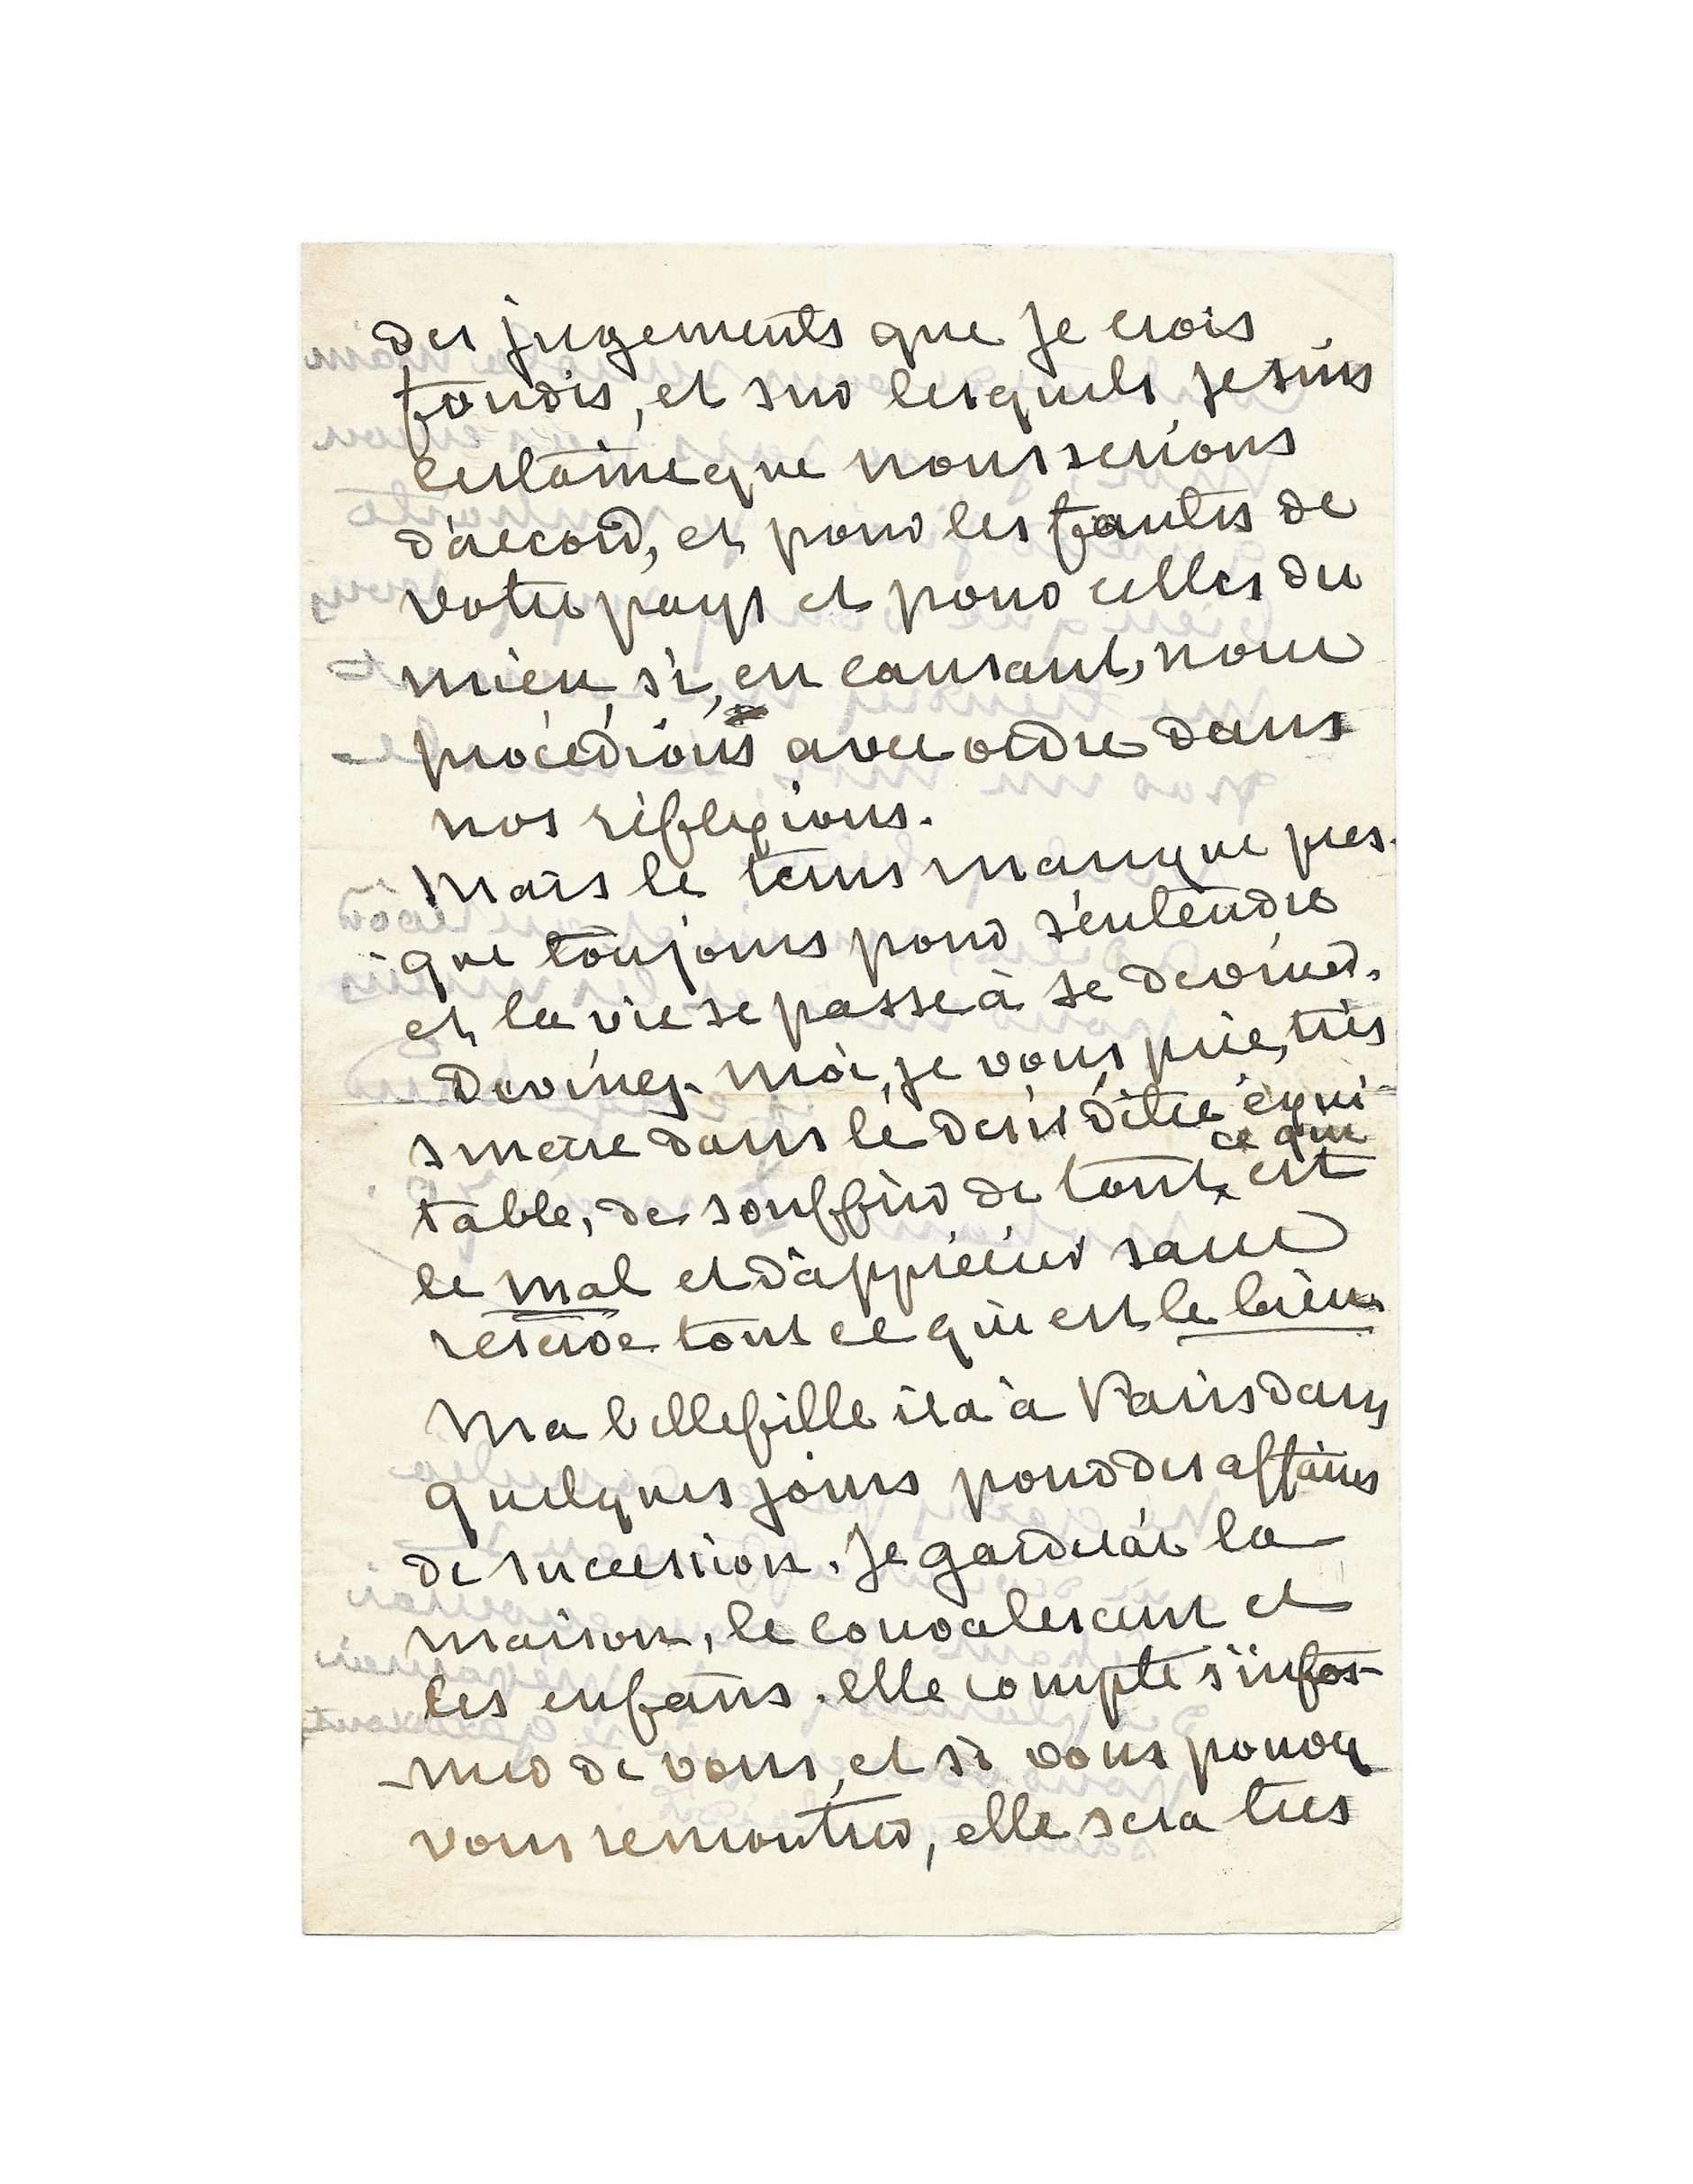 des jugements que je crois
fondés, et sur lesquels je suis
certaine que nous serions
d'accord, et pour les fautes de
votre pays et pour celles du
mien, si, en causant, nous
procédions avec ordre dans
nos réflexions.
Mais le tems manque pres-
que toujours pour s'entendre
et la vie se passe à se deviner.
Devinez-moi, je vous prie, très
sincère dans le désir d'être équi-
table, de souffrir de tout ce qui est
le mal et d'apprécier sans
réserve tout ce qui est le bien.
Ma bellefille ira à Paris dans
quelques jours pour des affaires
de succession. Je garderai la
maison, le convalescent et
les enfans. elle compte s'infor-
mer de vous, et si vous pouvez
vous remontrer, elle sera très